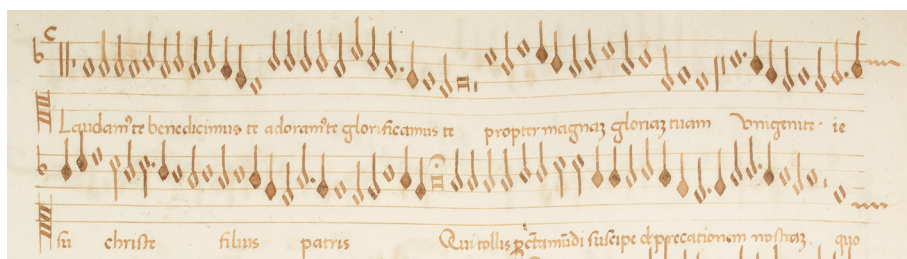 Laudam⁹ te benedicimus te adoram⁹ te glorificamus te propter magnaʒ gloriaʒ tuam Vnigenite ie
su christe filius patris Qui tollis p̄ctā mūdi suscipe deprecationem nostraʒ quo